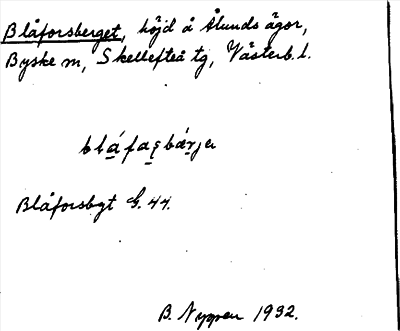 Blåforsberget, höjd å Ålunds ägor,
Byske sn, Skellefteå tg, Västerb. l.
Blåforsbgt G. 44.
B. Nyman 1932.